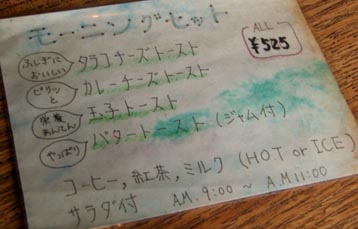 モーニングセット
ALL
¥525
ふしぎに
おいしい
タラコチーズトースト
ピリッ
と
カレーチーズトースト
栄養
まんてん
玉子トースト
やっぱり
バタートースト(ジャム付)
コーヒー,紅茶,ミルク(HOT or ICE)
サラダ付 A.M.9:00 ~ A.M11:00